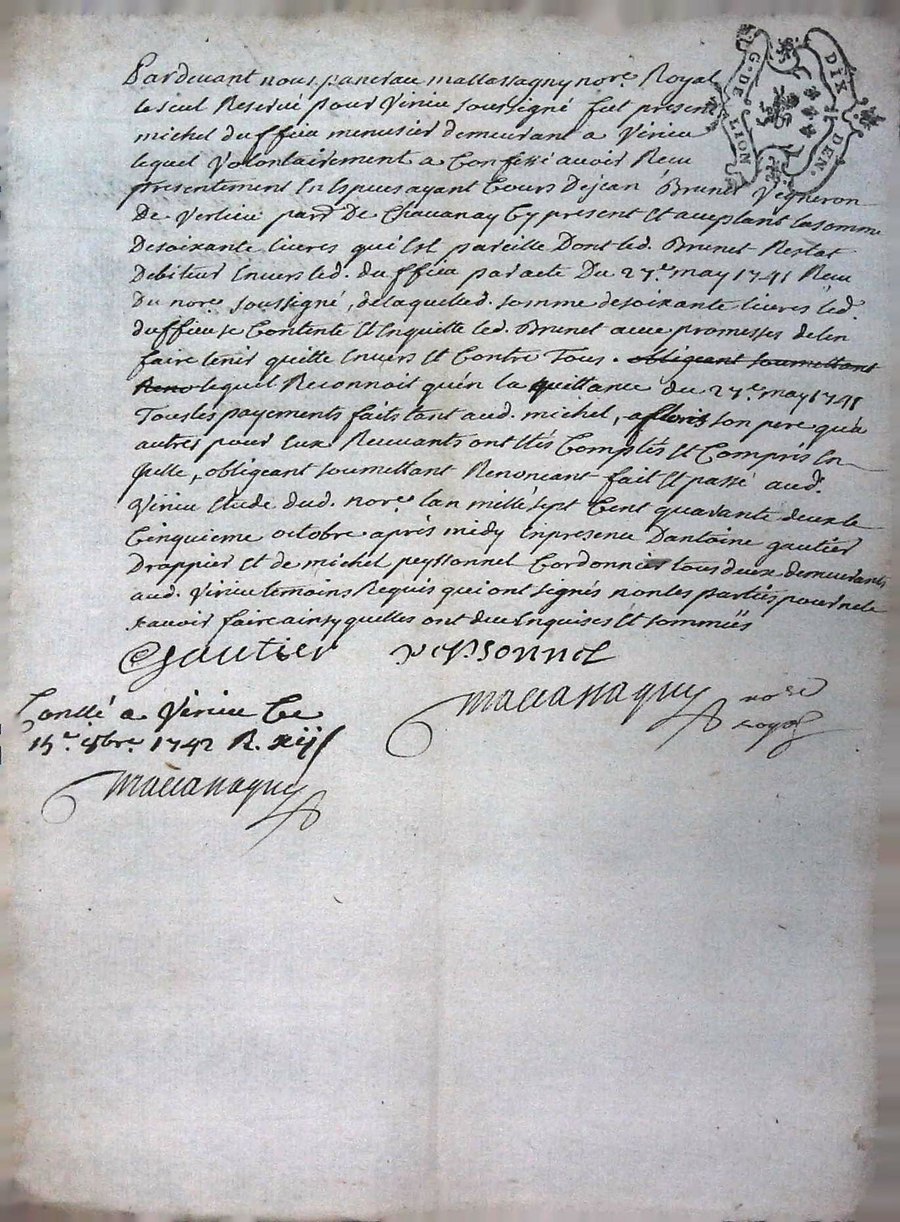 Pardevant nous pancrace mattassagny nore. Royal
le seul Reservé pour Virieu soussigné fut present
michel duffieu menusier demeurant a Virieu
lequel Volontairement a Confessé avoir Receu
presentement En Especes ayant Cours Dejean Brunet Vigneron
De Verlieu parr. De Chavanay Cy present Et aceptant la somme
Desoixante livres qui Est pareille Dont led. Brunet Restat
Debiteur Envers led. duffieu par acte Du 27e. may 1741 Receu
Du nore. soussigné, de laquelle d. somme desoixante livres led.
duffieu se Contente Et Enquitte led. Brunet avec promesses delen
faire tenir quitte Envers Et Contre Tous. obligeant soumettant
Reno lequel Reconnoit quén la quittance du 27e. may 1741
Tous les payements faits tant aud. michel, a fleuris son pere qu'a
autres pour Eux Recevants ont Etés Comptés Et Compris En
icelle, obligeant soumettant Renonceant fait Et passé aud.
Virieu Etude dud. nore. lan mille sept Cent quarante deux le
Cinquieme octobre aprés midy Enpresence Dantoine gautier
Drappier Et de michel peyssonnel Cordonnier tous deux demeurants
aud. Virieu temoins Requis qui ont signés non les parties pour ne le
scavoir faire ainsy quelles ont dit Enquises Et sommées
Gautier peysonnel
Mattassagny nore
royal
Conllé a Virieu Ce
15e. 8bre. 1742 R. xij s
Mattassagny
G. DE LION
DIX DEN.